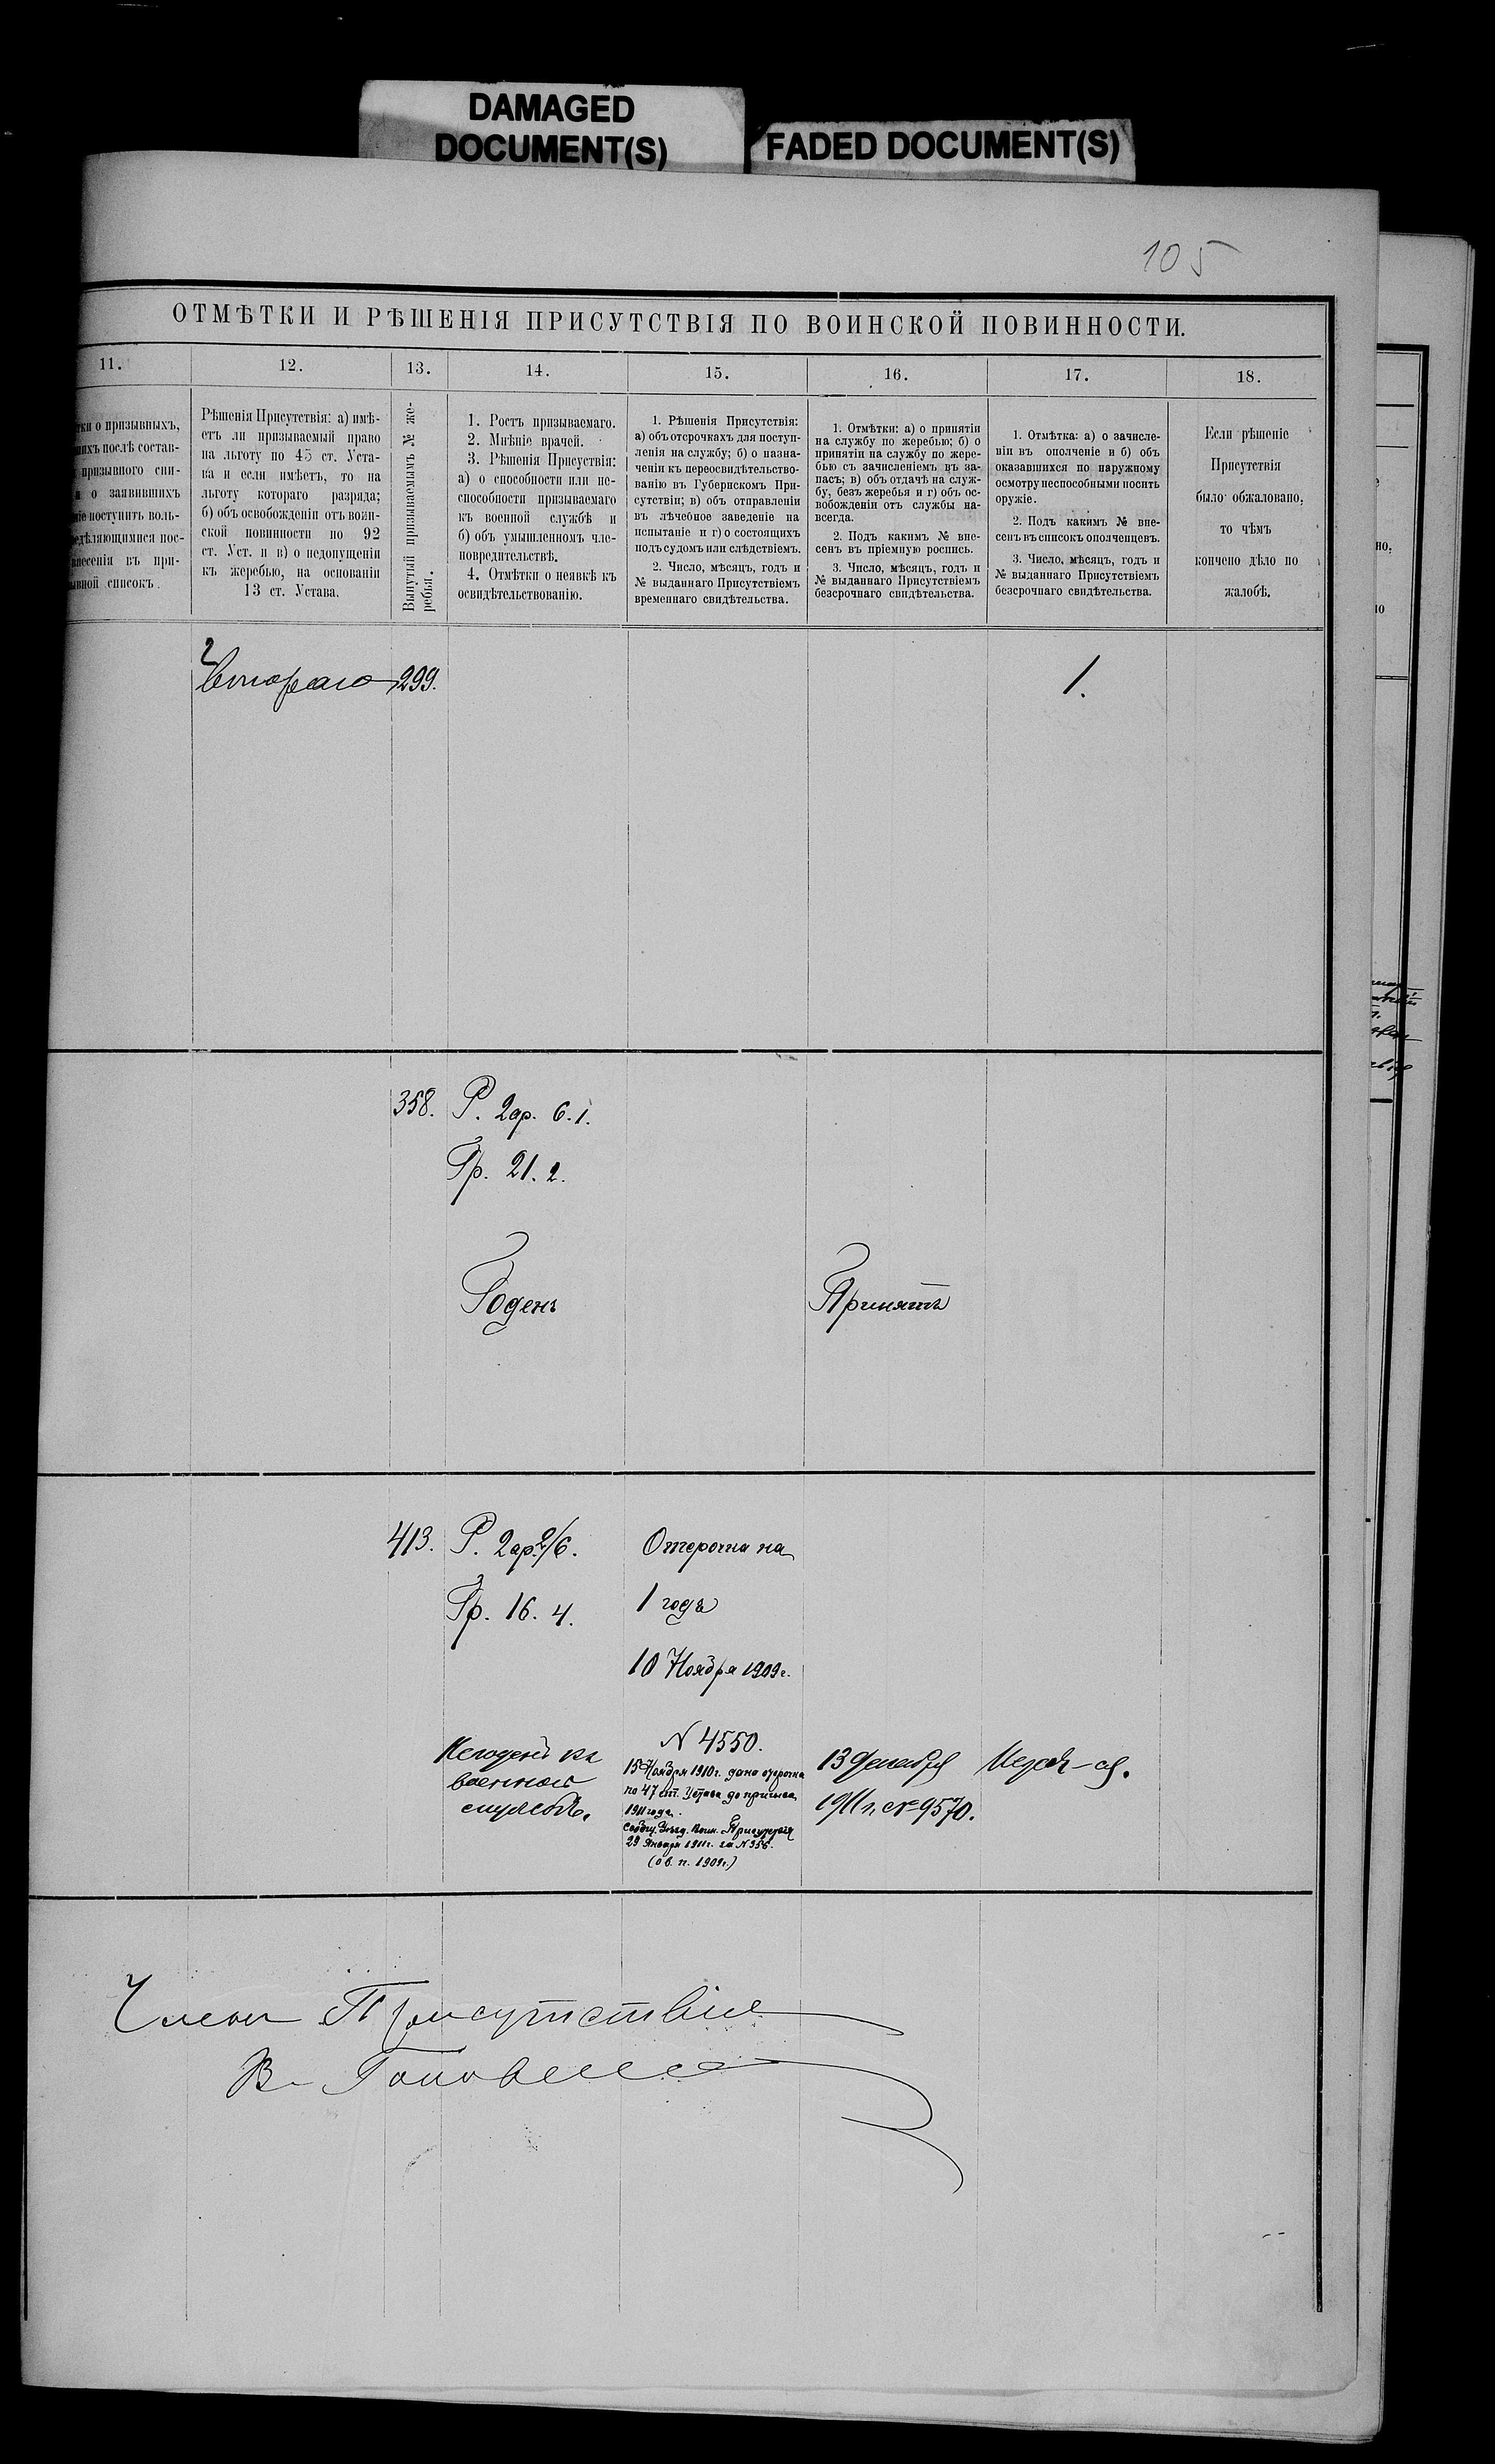 DAMAGED
DOCUMENT(S)
FADED DOCUMENT(S)
105
ОТМѢТКИ И РѢШЕНІЯ ПРИСУТСТВІЯ ПО ВОИНСКОЙ ПОВИННОСТИ.
11.
12.
13.
14.
15.
16.
17.
18.
о призывныхъ,
послѣ состав-
призывного спи-
о заявившихъ
поступить воль-
внесенія въ при-
списокъ.
Рѣшенія Присутствія: а) имѣ-
етъ ли призываемый право
на льготу по 45 ст. Уста-
ва и если имѣетъ, то на
льготу котораго разряда;
б) объ освобожденіи отъ воин-
ской повинности по 92
ст. Уст. и в) о недопущеніи
къ жеребью, на основаніи
13 ст. Устава.
Вынутый призываемымъ № же-
ребья.
1. Ростъ призываемаго.
2. Мнѣніе врачей.
3. Рѣшенія Присуствія:
а) о способности или не-
способности призываемаго
къ военной службѣ и
б) объ умышленномъ чле-
новредительствѣ.
4. Отмѣтки о неявкѣ къ
освидѣтельствованію.
1. Рѣшенія Присутствія:
а) объ отсрочкахъ для поступ-
ленія на службу; б) о назна-
ченіи къ переосвидѣтельство-
ванію въ Губернскомъ При-
сутствіи; в) объ отправленіи
въ лѣчебное заведеніе на
испытаніе и г) о состоящихъ
подъ судомъ или слѣдствіемъ.
2. Число, мѣсяцъ, годъ и
№ выданнаго Присутствіемъ
временнаго свидѣтельства.
1. Отмѣтки: а) о принятіи
на службу по жеребью; б) о
принятіи на службу по жере-
бью съ зачисленіемъ въ за-
пасъ; в) объ отдачѣ на служ-
бу, безъ жеребья и г) объ ос-
вобожденіи отъ службы на-
всегда.
2. Подъ какимъ № вне-
сенъ въ пріемную роспись.
3. Число, мѣсяцъ, годъ и
№ выданнаго Присутствіемъ
безсрочнаго свидѣтельства.
1. Отмѣтка: а) о зачисле-
ніи въ ополченіе и б) объ
оказавшихся по наружному
осмотру неспособными носить
оружіе.
2. Подъ какимъ № вне-
сенъ въ списокъ ополченцевъ.
3. Число, мѣсяцъ, годъ и
№ выданнаго Присутствіемъ
безсрочнаго свидѣтельства.
Если рѣшеніе
Присутствія
было обжаловано,
то чѣмъ
кончено дѣло по
жалобѣ.
2
Второго
299.
1.
358.
Р. 2ар. 6.1.
Гр. 21.2.
Годенъ
Принятъ
413.
Р. 2ар. 2/6.
Гр. 16.4.
Негоденъ къ
военной
службѣ.
Отсрочка на
1 годъ
10 Ноября 1909г.
N 4550.
15 Ноября 1910г. дана отсрочка
по 47 ст. Устава до призыва
1911 года.
Сообщ. Уѣзд. Воин. Присутствія
29 Января 1911г. за N 356.
(о в. п. 1909г.)
13 Декабря
1911 г. № 9570.
Члены Присутствія